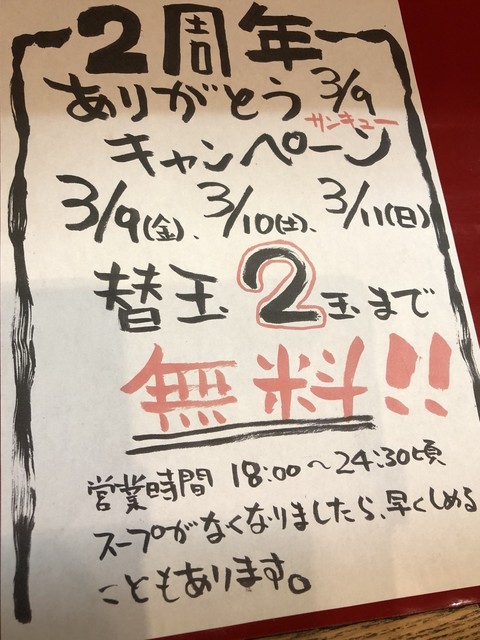 2周年
ありがとう3/9
サンキュー
キャンペーン
3/9(金)、3/10(土)、3/11(日)
替玉2玉まで
無料!!
営業時間 18:00〜24:30頃
スープがなくなりましたら、早くしめる
こともあります。